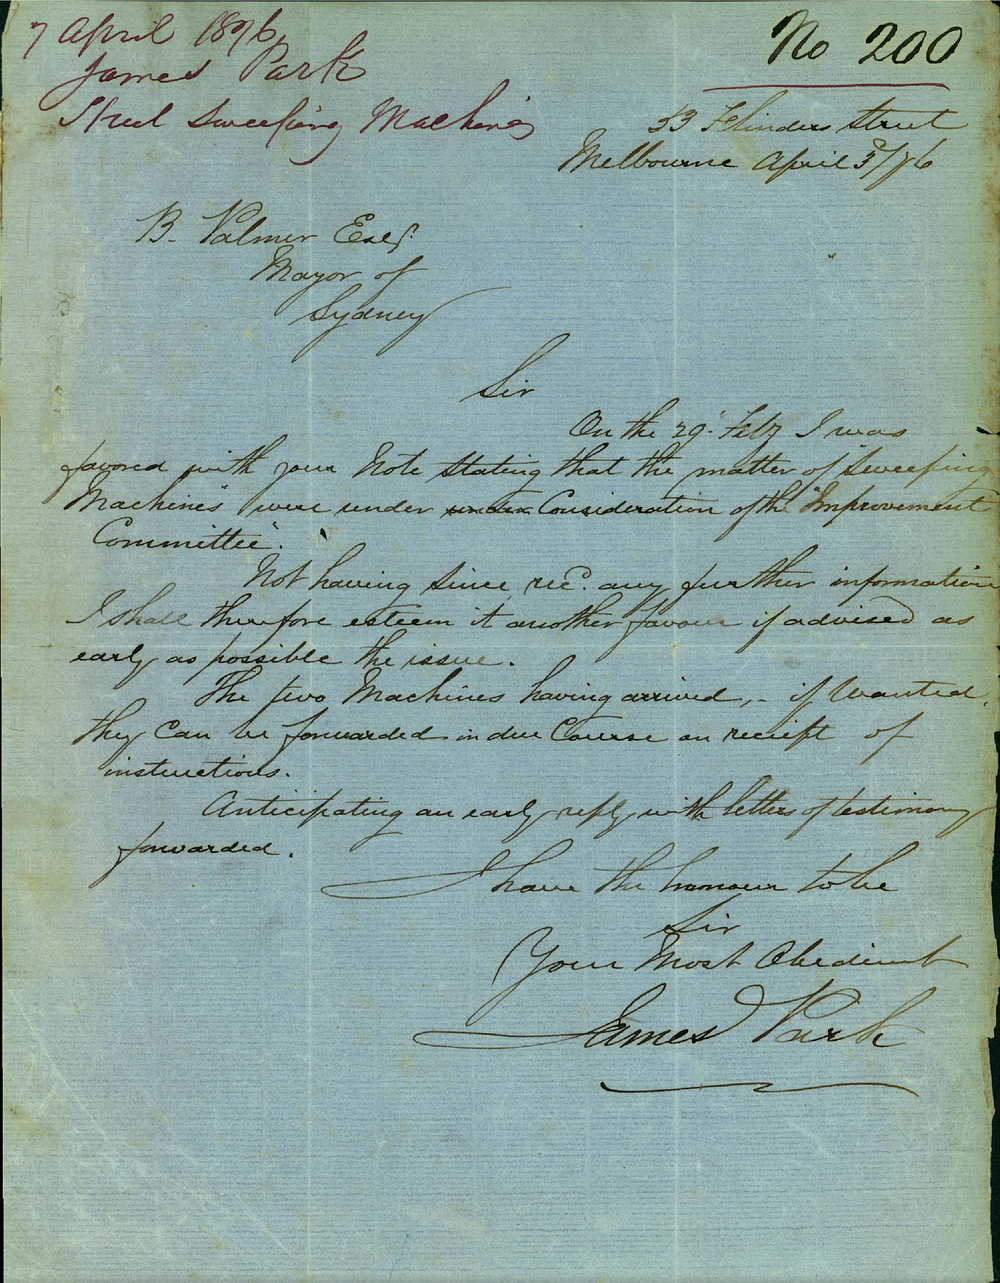 7 April 1876
James Park
Street Sweeping Machines
No 200
53 Flinders Street
Melbourne April 3/76
B. Palmer Esq.
Mayor of
Sydney
Sir
On the 29. Feby I was
favored with your Note stating that the matter of "Sweeping
Machines" were under under Consideration of the "Improvement
Committee".
Not having since recd. any further information
I shall therefore esteem it another favour if advised as
early as possible the issue.
The two Machines having arrived, - if Wanted,
they can be forwarded in due Course on reciept of
instructions.
Anticipating an early reply with letters of testimony
forwarded.
I have the honour to be
Sir
Your Most Obedient
James Park